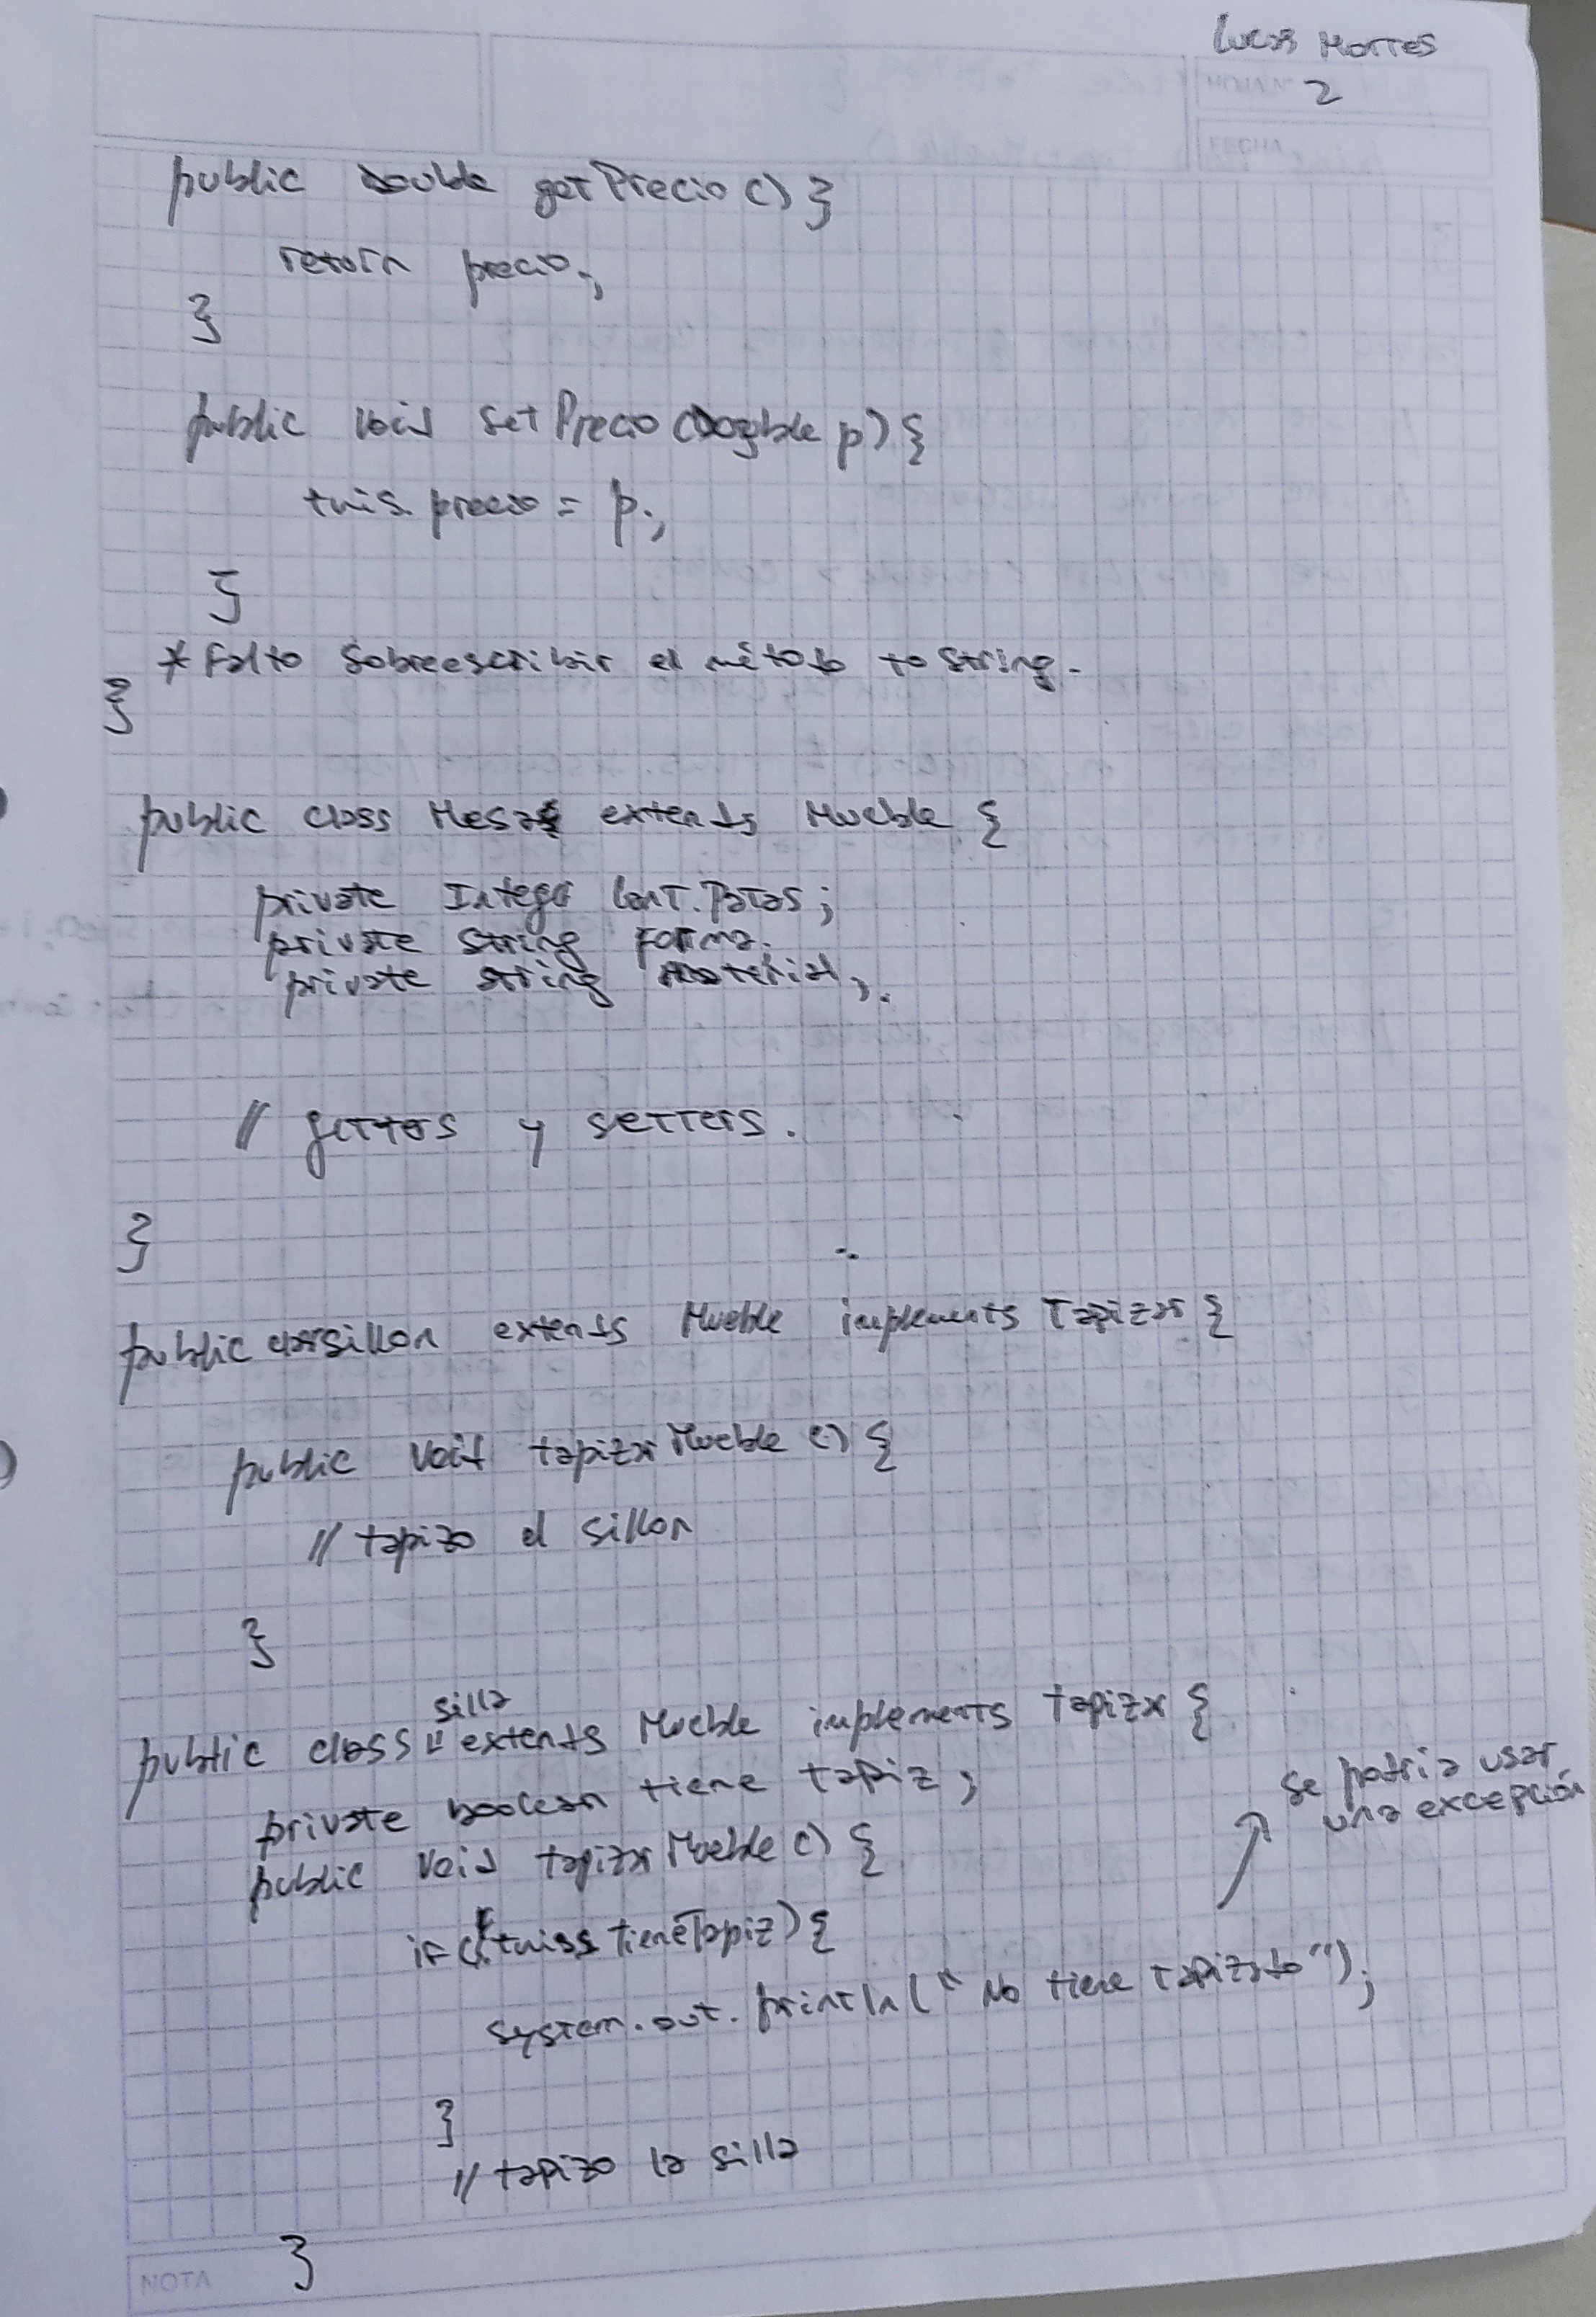 Lucas Mortes
HOJA Nº 2
FECHA
public Double getPrecio () }
return precio;
}
public void setPrecio (Double p) {
this.precio = p;
}
* Falto sobreescribir el método toString.
}
public class Mesa extends Mueble {
private Integer Cant.Patas;
private String Forma.
private String material;
// getters y setters.
}
public class sillon extends Mueble implements Tapizar {
public void tapizarMueble () {
// tapizo el sillon
}
silla
public class " extends Mueble implements tapizar {
private boolean tiene tapiz;
public void tapizarMueble () {
se podria usar
una excepción
if (!this.tieneTapiz) {
system.out.println("No tiene tapizado");
}
// tapizo la silla
}
NOTA